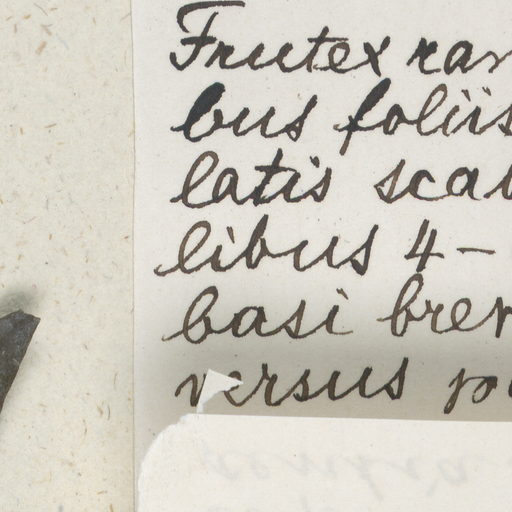 Frutex ram
bus foliis
latis scab
libus 4-
basi brev
versus